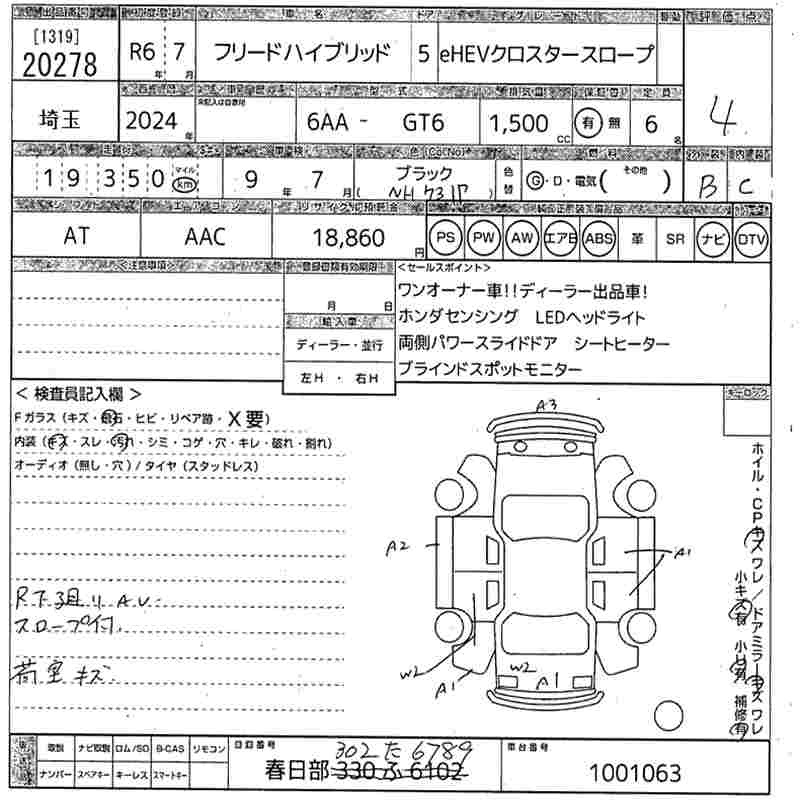 [1319]
20278
R6 年 7 月
フリードハイブリッド
ドア
5
eHEVクロスタースロープ
評価点
4
埼玉
2024 年
型式
6AA - GT6
1,500 CC
有 無
定員
6 名
19350
マイル
km
車検
9 年 7 月
ブラック
( NH731P )
色替
燃料
G・D・電気( その他 )
外装 内装
B C
シフト
エアコン
リサイクル預託金
AT
AAC
18,860 円
PS PW AW エアB ABS 革 SR ナビ DTV
<注意事項>
登録書類有効期限
月 日
輸入車
ディーラー・並行
左H ・ 右H
<セールスポイント>
ワンオーナー車!!ディーラー出品車!
ホンダセンシング LEDヘッドライト
両側パワースライドドア シートヒーター
ブラインドスポットモニター
< 検査員記入欄 >
Fガラス (キズ・飛石・ヒビ・リペア跡・X要)
内装 (キズ・スレ・汚れ・シミ・コゲ・穴・キレ・破れ・割れ)
オーディオ (無し・穴) / タイヤ (スタッドレス)
スロープ付.
荷室キズ
A3
A2
A1
W2
A1
W2
A1
キーロック
ホイル・CPキズワレ/ドアミラーキズワレ
小キズ有 小凹有 補修有
取説 ナビ取説 ロム/SD B-CAS リモコン
ナンバー スペアキー キーレス スマートキー
登録番号
302 た 6789
春日部 330 ふ 6102
車台番号
1001063